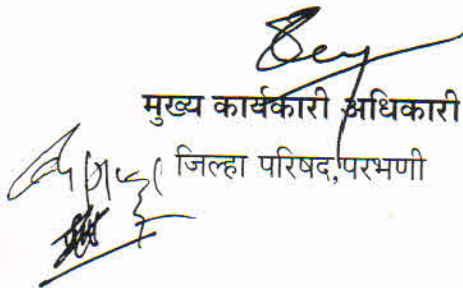 मुख्य कार्यकारी अधिकारी
जिल्हा परिषद,परभणी